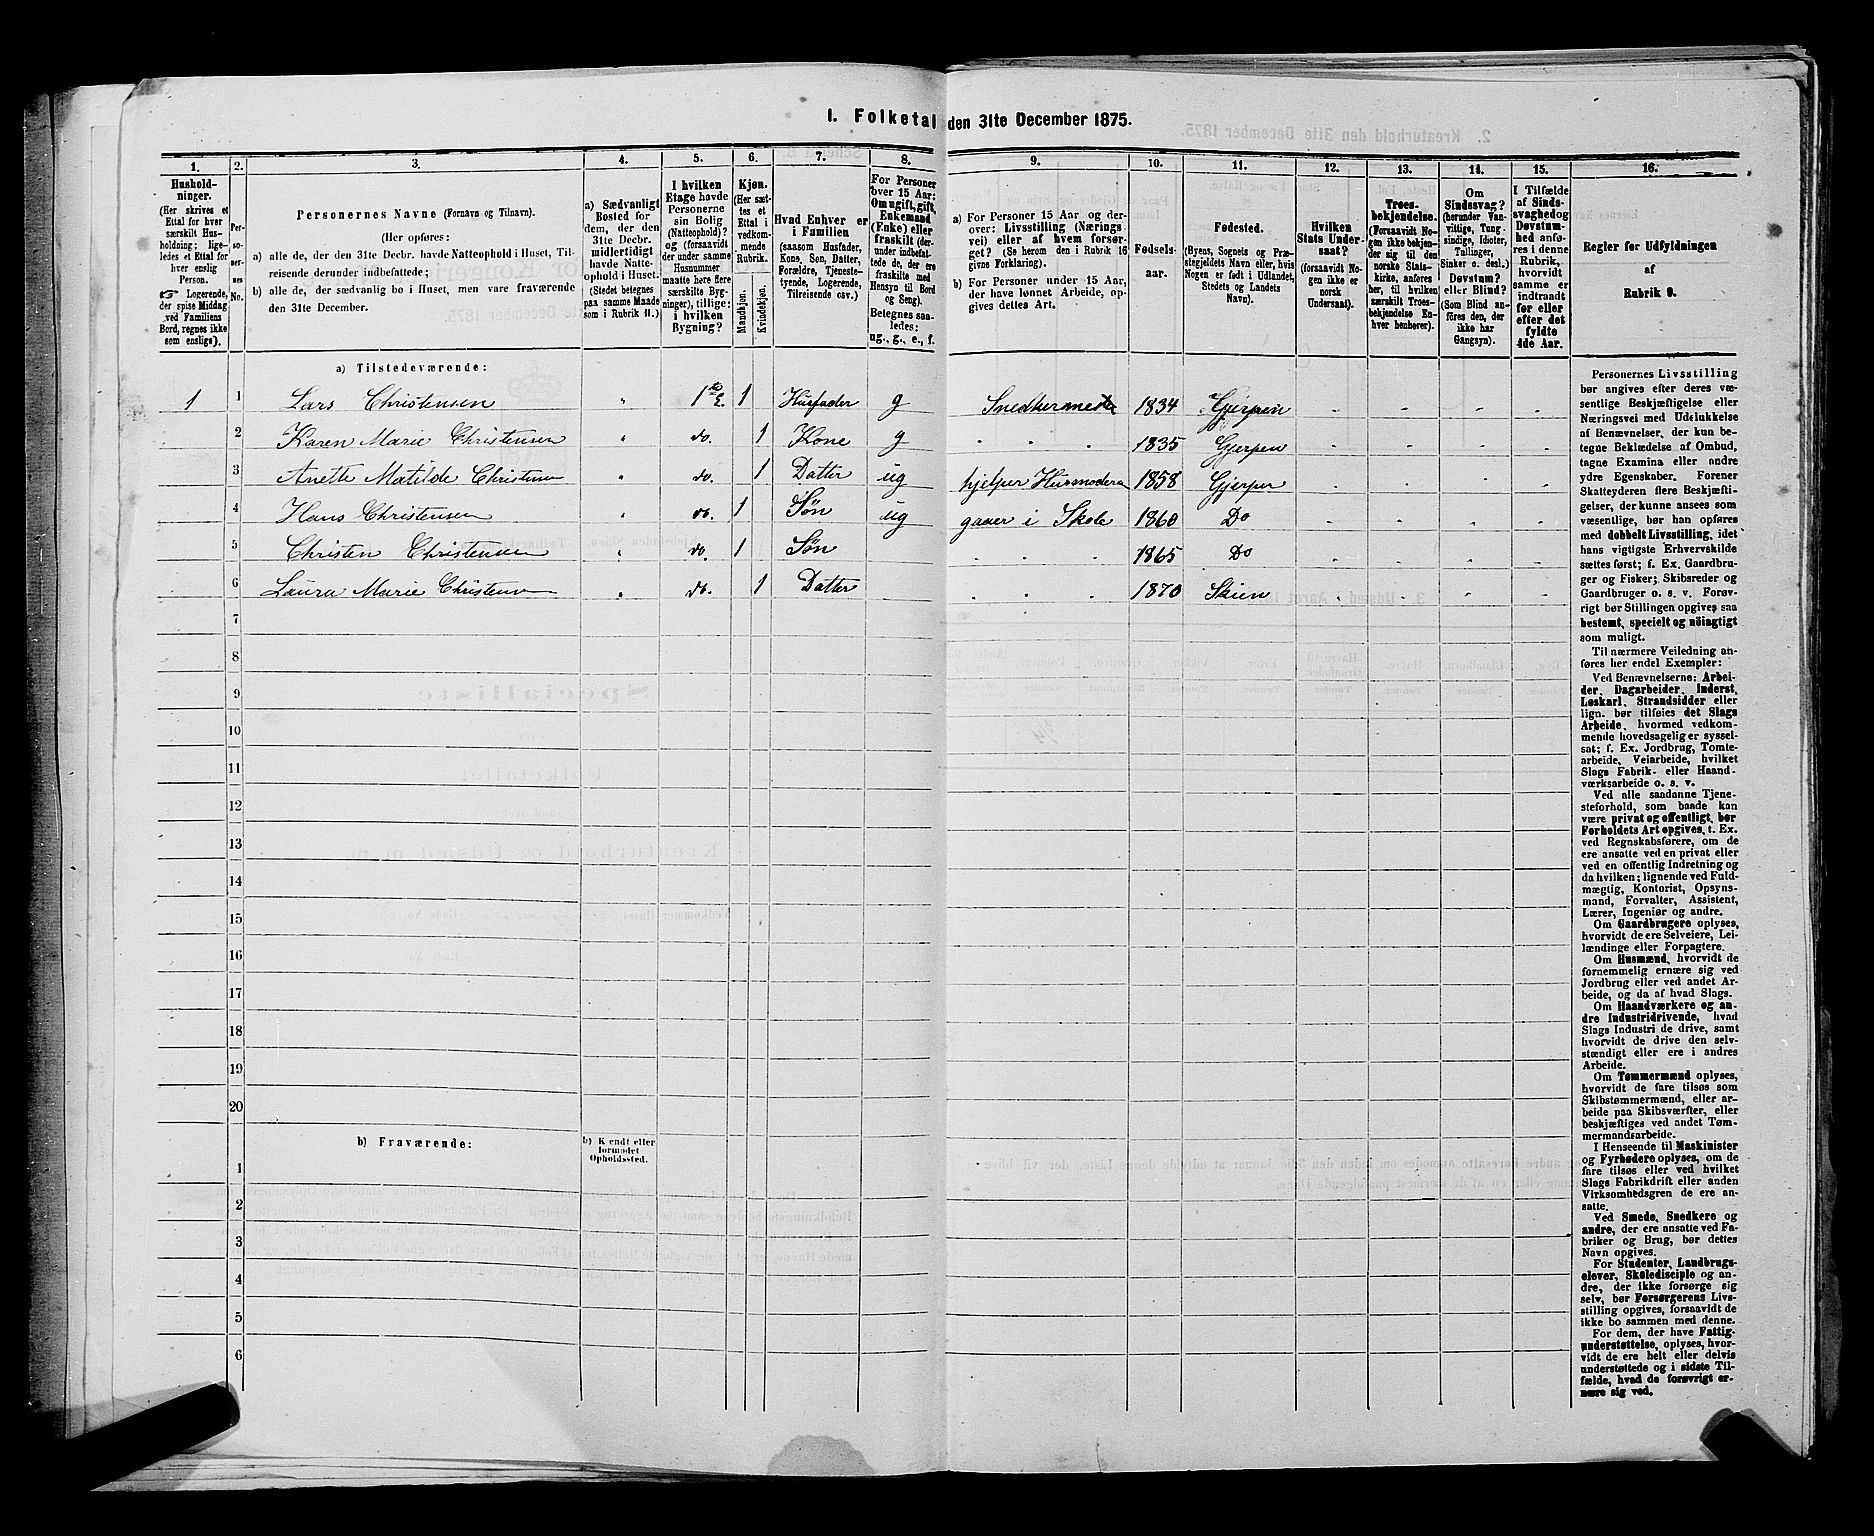 I. Folketal den 31te December 1875.
1. 2. 3. 4. 5. 6. 7. 8. 9. 10. 11. 12. 13. 14. 15. 16.
Hushold-
ninger.
(Her skrives et
Ettal for hver
særskilt Hus-
holdning; lige-
ledes et Ettal for
hver enslig
Person.
☞ Logerende,
der spise Middag
ved Familiens
Bord, regnes ikke
som enslige).
Per-
so-
ner-
nes
No.
Personernes Navne (Fornavn og Tilnavn).
(Her opføres:
a) alle de, der den 31te Decbr. havde Natteophold i Huset, Til-
reisende derunder indbefattede;
b) alle de, der sædvanlig bo i Huset, men vare fraværende
den 31te December.
a) Sædvanligt
Bosted for
dem, der den
31te Decbr.
midlertidigt
havde Natte-
ophold i Huset.
(Stedet betegnes
paa samme Maade
som i Rubrik 11.)
I hvilken
Etage havde
Personerne
sin Bolig
(Natteophold)?
og (forsaavidt
der under samme
Husnummer
maatte høre flere
særskilte Byg-
ninger), tillige:
i hvilken
Bygning?
Kjøn.
(Her sæt-
tes et
Ettal i
vedkom-
mende
Rubrik.
Mandkjøn.
Kvindekjøn.
Hvad Enhver er
i Familien
(saasom Husfader,
Kone, Søn, Datter,
Forældre, Tjeneste-
tyende, Logerende,
Tilreisende osv.)
For Personer
over 15 Aar:
Om ugift, gift,
Enkemand
(Enke) eller
fraskilt (der-
under indbefat-
tede de, der ere
fraskilte med
Hensyn til Bord
og Seng).
Betegnes saa-
ledes:
ug., g., e., f.
a) For Personer 15 Aar og der-
over: Livsstilling (Nærings-
vei) eller af hvem forsør-
get? (Se herom den i Rubrik 16
givne Forklaring).
b) For Personer under 15 Aar,
der have lønnet Arbeide, op-
gives dettes Art.
Fødsels-
aar.
Fødested.
(Byens, Sognets og Præ-
stegjeldets Navn eller, hvis
Nogen er født i Udlandet,
Stedets og Landets
Navn).
Hvilken
Stats Under-
saat?
(forsaavidt No-
gen ikke er
norsk
Undersaat).
Troes-
bekjendelse.
(Forsaavidt No-
gen ikke bekjen-
der sig til den
norske Stats-
kirke, anføres
her, til hvilken
særskilt Troes-
bekjendelse En-
hver henhører).
Om
Sindssvag?
(herunder Van-
vittige, Tung-
sindige, Idioter,
Tullinger,
Sinker o. desl.)
Døvstum?
eller Blind?
(Som Blind an-
føres den, der
ikke har
Gangsyn).
I Tilfælde
af Sinds-
svaghed og
Døvstum-
hed anfø-
res i denne
Rubrik,
hvorvidt
samme er
indtraadt
før eller
efter det
fyldte
4de Aar.
Regler før Udfyldningen
af
Rubrik 9.
a) Tilstedeværende:
1 1 Lars Christensen " 1ste E. 1 Husfader g Snedkermester 1834 Gjerpen
2 Karen Marie Christensen " do. 1 Kone g " " " 1835 Gjerpen
3 Anette Matilde Christensen " do. 1 Datter ug hjelper Husmoderen 1858 Gjerpen
4 Hans Christensen " do. 1 Søn ug gaaer i Skole 1860 Do
5 Christen Christensen " do. 1 Søn " " 1865 Do
6 Laura Marie Christensen " do. 1 Datter " " " 1870 Skien
7
8
9
10
11
12
13
14
15
16
17
18
19
20
b) Fraværende:
b) Kendt eller
formodet
Opholdssted.
1
2
3
4
5
6
Personernes Livsstilling
bør angives efter deres væ-
sentlige Beskjæftigelse eller
Næringsvei med Udelukkelse
af Benævnelser, der kun be-
tegne Beklædelse af Ombud,
tagne Examina eller andre
ydre Egenskaber. Forener
Skatteyderen flere Beskjæfti-
gelser, der kunne ansees som
væsentlige, bør han opføres
med dobbelt Livsstilling, idet
hans vigtigste Erhvervskilde
sættes først; f. Ex. Gaardbru-
ger og Fisker; Skibsreder og
Gaardbruger o. s. v. Forøv-
rigt bør Stillingen opgives saa
bestemt, specielt og nöiagtigt
som muligt.
Til nærmere Veiledning an-
føres her endel Exempler:
Ved Benævnelserne: Arbei-
der, Dagarbeider, Inderst,
Løskarl, Strandsidder eller
lign. bør tilføies det Slags
Arbeide, hvormed vedkom-
mende hovedsagelig er syssel-
sat; f. Ex. Jordbrug, Tomte-
arbeide, Veiarbeide, hvilket
Slags Fabrik- eller Haand-
værksarbeide o. s. v.
Ved alle saadanne Tjene-
steforhold, som baade kan
være privat og offentligt, bør
Forholdets Art opgives, t. Ex.
ved Regnskabsførere, om de
ere ansatte ved en privat eller
ved en offentlig Indretning og
da hvilken; lignende ved Fuld-
mægtig, Kontorist, Opsyns-
mand, Forvalter, Assistent,
Lærer, Ingeniør og andre.
Om Gaardbrugere oplyses,
hvorvidt de ere Selveiere, Lei-
lændinge eller Forpagtere.
Om Husmænd, hvorvidt de
fornemmelig ernære sig ved
Jordbrug eller ved andet Ar-
beide, og da af hvad Slags.
Om Haandværkere og an-
dre Industridrivende, hvad
Slags Industri de drive, samt
hvorvidt de drive den selv-
stændigt eller ere i andres
Arbeide.
Om Tømmermænd oplyses,
hvorvidt de fare tilsøs som
Skibstømmermænd, eller ar-
beide paa Skibsværfter, eller
beskjæftiges ved andet Tøm-
mermandsarbeide.
I Henseende til Maskinister
og Fyrbødere oplyses, om de
fare tilsøs eller ved hvilket
Slags Fabrikdrift eller anden
Virksomhedsgren de ere an-
satte.
Ved Smede, Snedkere og
andre, der ere ansatte ved Fa-
briker og Brug, bør dettes
Navn opgives.
For Studenter, Landbrugs-
elever, Skoledisciple og an-
dre, der ikke forsørge sig
selv, bør Forsørgerens Livs-
stilling opgives, forsaavidt de
ikke bo sammen med denne.
For dem, der have Fattig-
understøttelse, oplyses, hvor-
vidt de ere helt eller delvis
understøttede og i sidste Til-
fælde, hvad de forøvrigt er-
nære sig ved.